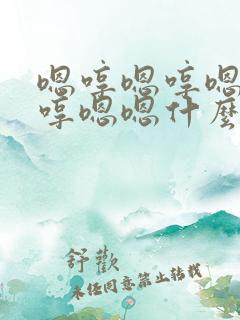 嗯哼嗯哼嗯
哼嗯嗯什麼
舒歡
未经同意禁止转载